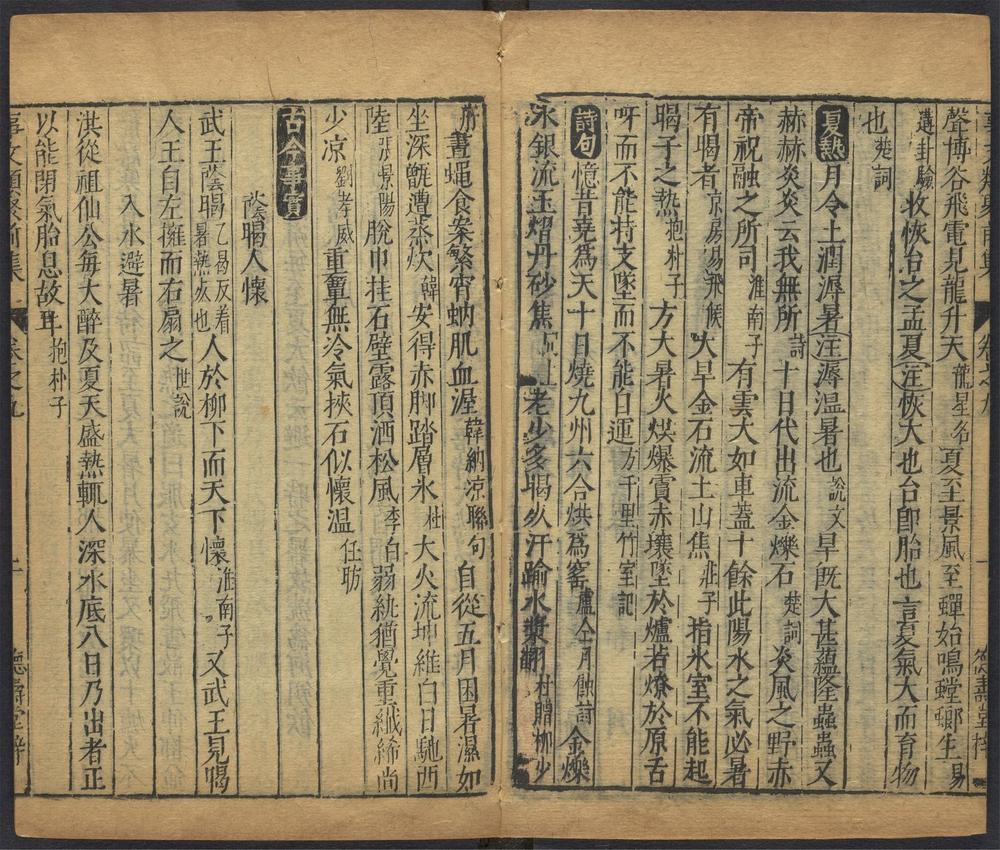 聲博谷飛電見龍升天龍星名夏至景風至蟬始鳴螳螂生易
通卦驗牧恢台之孟夏注恢大也台即胎也言夏氣大而育物
也楚詞
夏熱月令土潤溽暑注溽溫暑也說文旱既大甚蘊隆蟲蟲又
赫赫炎炎云我無所詩十日代出流金爍石楚詞炎風之野赤
帝祝融之所司淮南子有雲大如車蓋十餘此陽水之氣必暑
有暍者京房易飛候大旱金石流土山焦莊子指氷室不能起
暍子之熱抱朴子方大暑火烘爆賁赤壤墜於爐若燎於原舌
呀而不能持支墜而不能自運方千里竹室記
詩句憶昔堯為天十日燒九州六合烘為窰盧仝月蝕詩金爍
水銀流玉熠丹砂焦老少多暍死汗踰水漿翻杜贈柳少
府晝蠅食案繁宵蚋肌血渥韓納涼聯句自從五月困暑濕如
坐深甑遭蒸炊韓安得赤脚踏層氷杜大火流坤維白日馳西
陸張景陽脫巾挂石壁露頂洒松風李白弱紈猶覺重纖絺尚
少凉劉孝威重簟無冷氣挾石似懷溫任昉
古今事實
蔭暍人懷
武王蔭暍乙曷反看暑熱疾也人於柳下而天下懷淮南子又武王見暍
人王自左擁而右扇之世說
入水避暑
洪從祖仙公每大醉及夏天盛熱輒入深水底八日乃出者正
以能閉氣胎息故耳抱朴子
事文類聚前集卷之九
德壽堂梓